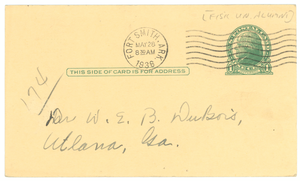 (FISK UN. ALUMNI)
FORT SMITH, ARK.
MAY 26
8:30 AM
1936
THIS SIDE OF CARD IS FOR ADDRESS
174
Dr. W. E. B. DuBois,
Atlana, Ga.